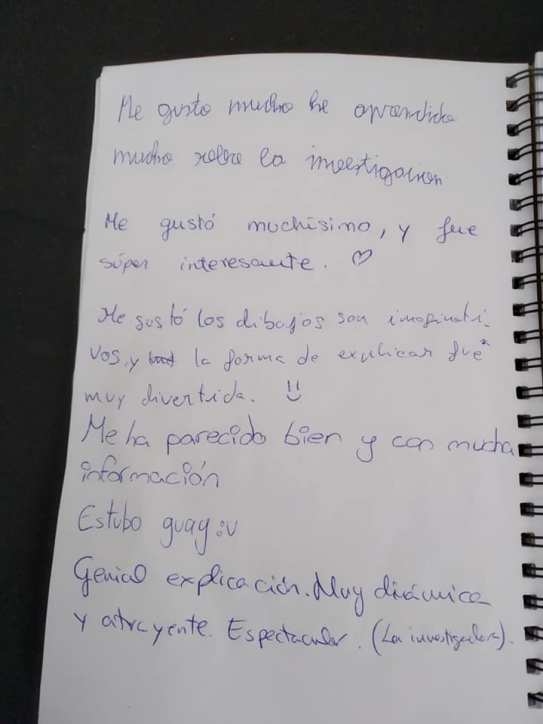 Me gusto mucho he aprendido
mucho sobre la investigacion
Me gustó muchísimo, y fue
súper interesante. ♡
Me gustó los dibujos son imaginati-
vos, y la forma de explicar fué
muy divertida. :)
Me ha parecido bien y con mucha
información
Estubo guay :v
Genial explicación. Muy dinámica
y atrayente. Espectacular. (La investigadora).